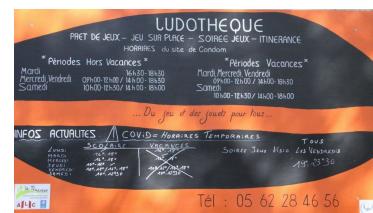 LUDOTHEQUE
PRET DE JEUX - JEU SUR PLACE - SOIREE JEUX - ITINERANCE
HORAIRES du site de Condom
*Périodes Hors Vacances*
Mardi 16h30-18h30
Mercredi, Vendredi 09h00-12h00 / 14h00-18h30
Samedi 10h00-12h30 / 14h00-18h00
*Périodes Vacances*
Mardi, Mercredi, Vendredi
09h00-12h00 / 14h00-18h30
Samedi
10h00-12h30 / 14h00-18h00
... Du jeu et des jouets pour tous...
INFOS ACTUALITES
COVID = HORAIRES TEMPORAIRES
SCOLAIRE VACANCES
LUNDI
MARDI
MERCREDI
JEUDI
VENDREDI
SAMEDI
TOUS
LES VENDREDIS
SOIREE JEUX
Tél : 05 62 28 46 56